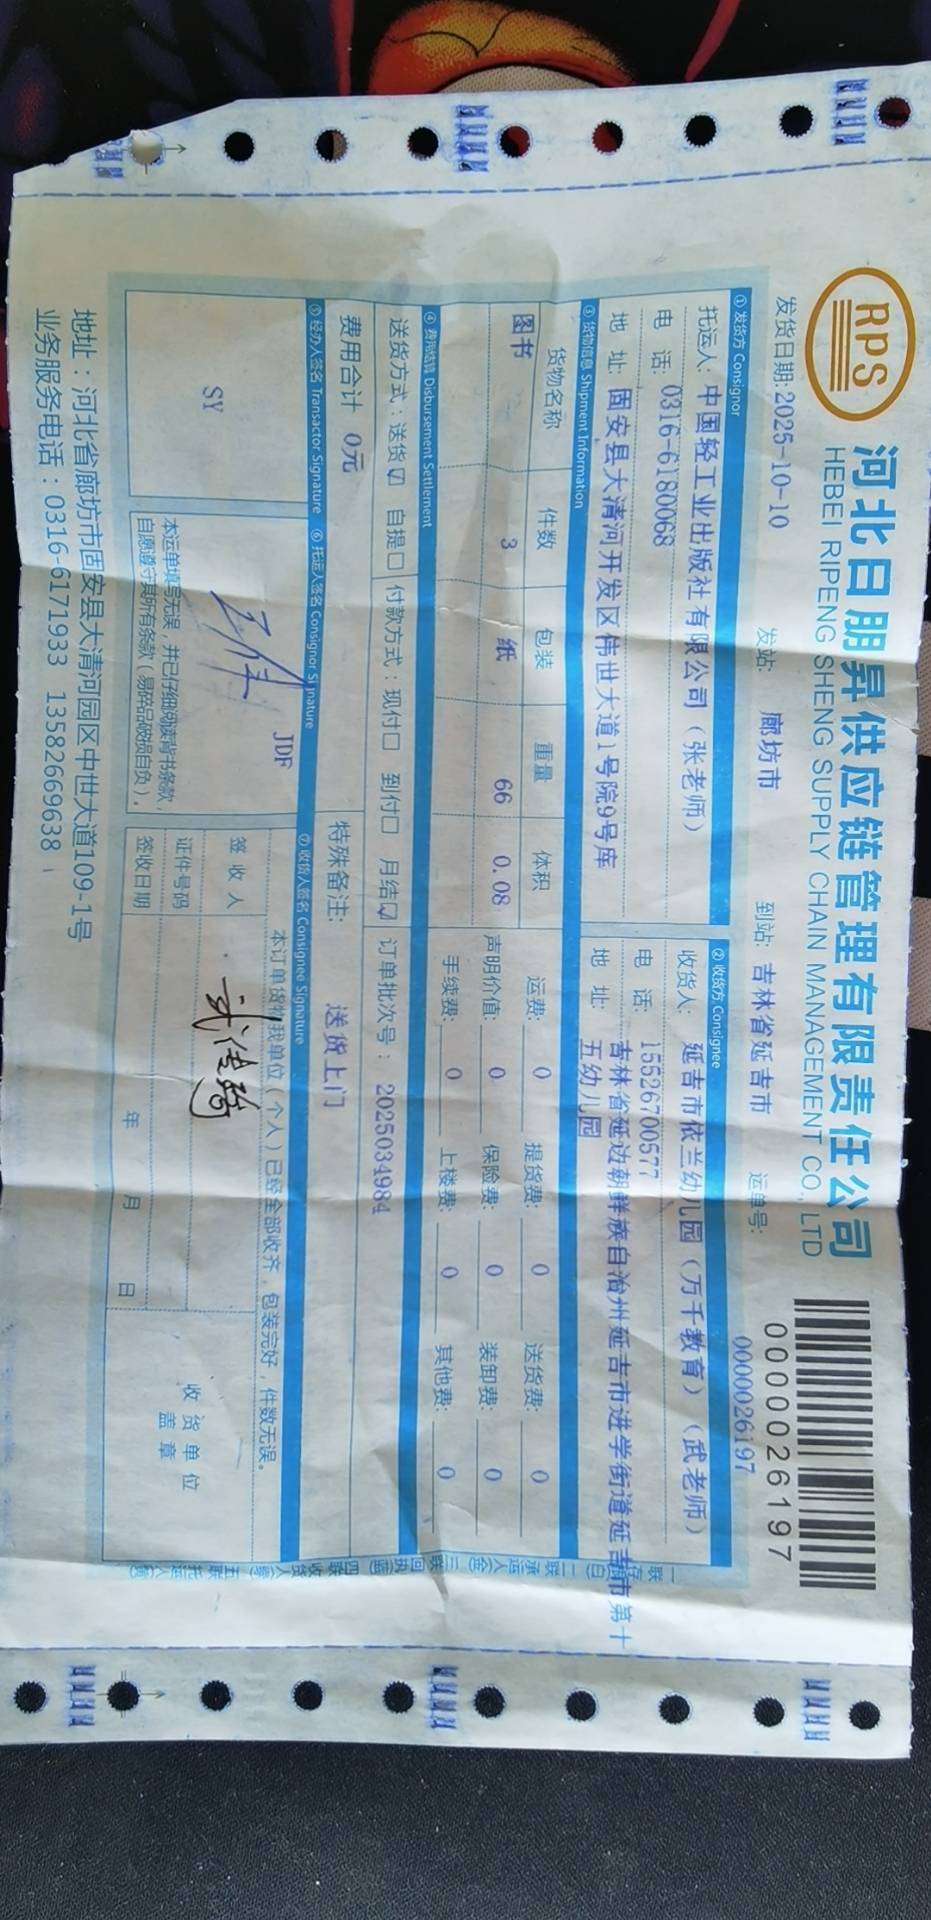 RPS
河北日朋昇供应链管理有限责任公司
HEBEI RIPENG SHENG SUPPLY CHAIN MANAGEMENT CO.,LTD
0000026197
发货日期:2025-10-10 发站: 廊坊市 到站: 吉林省延吉市 运单号: 0000026197
① 发货方 Consignor ② 收货方 Consignee
托运人: 中国轻工业出版社有限公司（张老师） 收货人: 延吉市依兰幼儿园（万千教育）（武老师）
电 话: 0316-6180068 电 话: 15526700577
地 址: 固安县大清河开发区伟世大道1号院9号库 地 址: 吉林省延边朝鲜族自治州延吉市进学街道延吉市第十
五幼儿园
③ 货物信息 Shipment Information
货物名称 件数 包装 重量 体积 运费: 0 提货费: 0 送货费: 0
图书 3 纸 66 0.08 声明价值: 0 保险费: 0 装卸费: 0
手续费: 0 上楼费: 0 其他费: 0
④ 费用结算 Disbursement Settlement
送货方式：送货☑ 自提□ 付款方式：现付□ 到付□ 月结☑ 订单批次号： 2025034984
费用合计 0元 特殊备注: 送货上门
⑤ 经办人签名 Transactor Signature ⑥ 托运人签名 Consignor Signature ⑦ 收货人签名 Consignee Signature
SY JDF
本运单填写无误，并已仔细阅读背书条款，
自愿遵守其所有条款（易碎品破损自负）。
本订单货物我单位（个人）已经全部收齐，包装完好，件数无误。
签 收 人
证件号码
签收日期 年 月 日
收 货 单 位
盖 章
地址：河北省廊坊市固安县大清河园区中世大道109-1号
业务服务电话：0316-6171933 13582669638